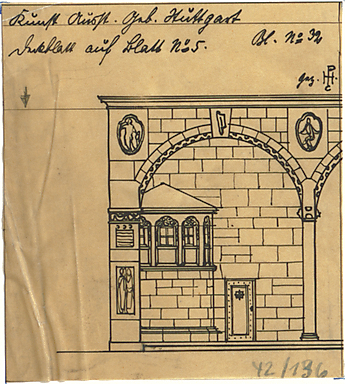 Kunst Ausst. Geb. Stuttgart
Deckblatt auf Blatt No 5.
Bl. No 32
gez. PHC
42/196